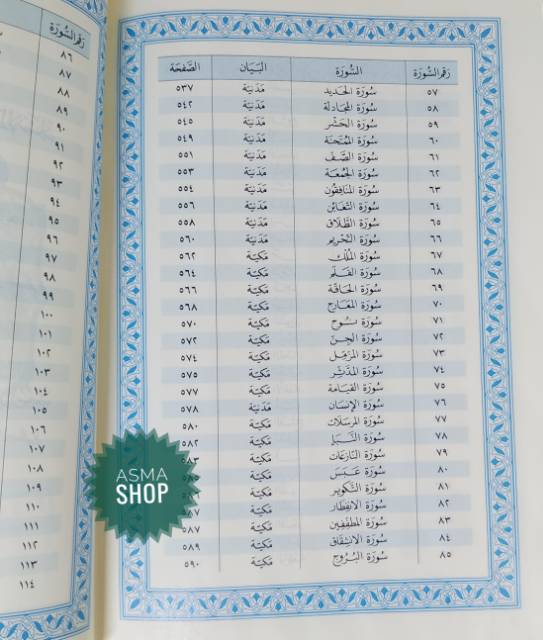 رَقم السُّورَة السُّورَة البَيَان الصَّفحَة
٥٧ سُورَة الحَديد مَدَنيَّة ٥٣٧
٥٨ سُورَة المجَادلة مَدَنيَّة ٥٤٢
٥٩ سُورَة الحَشْر مَدَنيَّة ٥٤٥
٦٠ سُورَة الممتَحنَة مَدَنيَّة ٥٤٩
٦١ سُورَة الصَّف مَدَنيَّة ٥٥١
٦٢ سُورَة الجُمُعَة مَدَنيَّة ٥٥٣
٦٣ سُورَة المنَافِقُون مَدَنيَّة ٥٥٤
٦٤ سُورَة التّغَابُن مَدَنيَّة ٥٥٦
٦٥ سُورَة الطَّلَاق مَدَنيَّة ٥٥٨
٦٦ سُورَة التّحْريم مَدَنيَّة ٥٦٠
٦٧ سُورَة المُلْك مَكيَّة ٥٦٢
٦٨ سُورَة القَلَم مَكيَّة ٥٦٤
٦٩ سُورَة الحَاقَّة مَكيَّة ٥٦٦
٧٠ سُورَة المعَارج مَكيَّة ٥٦٨
٧١ سُورَة نُوح مَكيَّة ٥٧٠
٧٢ سُورَة الجِنّ مَكيَّة ٥٧٢
٧٣ سُورَة المزمِّل مَكيَّة ٥٧٤
٧٤ سُورَة المدَّثِّر مَكيَّة ٥٧٥
٧٥ سُورَة القيَامَة مَكيَّة ٥٧٧
٧٦ سُورَة الإنسَان مَدَنيَّة ٥٧٨
٧٧ سُورَة المرسَلات مَكيَّة ٥٨٠
٧٨ سُورَة النَّبَإ مَكيَّة ٥٨٢
٧٩ سُورَة النّازعَات مَكيَّة ٥٨٣
٨٠ سُورَة عَبَسَ مَكيَّة
٨١ سُورَة التّكوير مَكيَّة
٨٢ سُورَة الانفِطار مَكيَّة
٨٣ سُورَة المطفِّفِين مَكيَّة ٥٨٧
٨٤ سُورَة الانشِقَاق مَكيَّة ٥٨٩
٨٥ سُورَة البُرُوج مَكيَّة ٥٩٠
رَقم السُّورَة
٨٦
٨٧
٨٨
٨٩
٩٠
٩١
٩٢
٩٣
٩٤
٩٥
٩٦
٩٧
٩٨
٩٩
١٠٠
١٠١
١٠٢
١٠٣
١٠٤
١٠٥
١٠٦
١٠٧
١٠٨
١٠٩
١١٠
١١١
١١٢
١١٣
١١٤
ASMA
SHOP